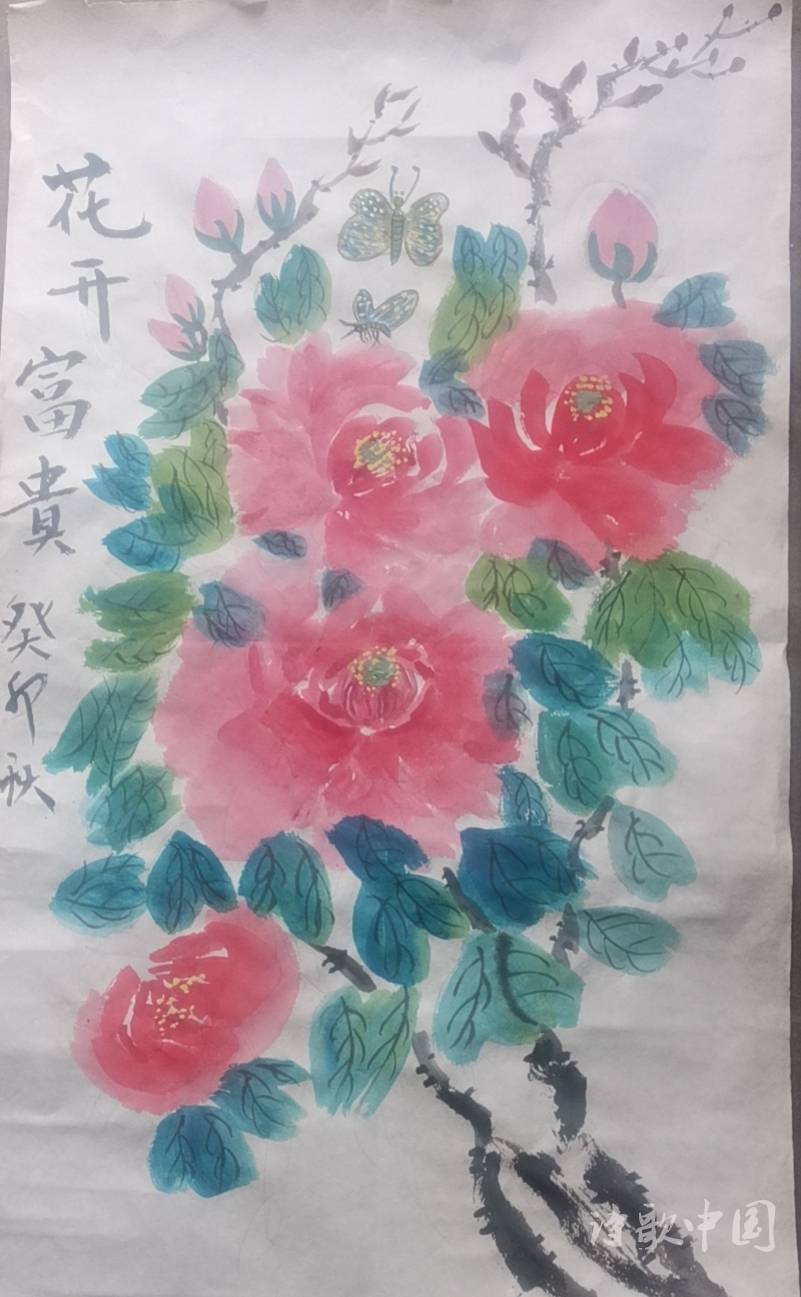 花开富貴
癸卯秋
诗歌中国